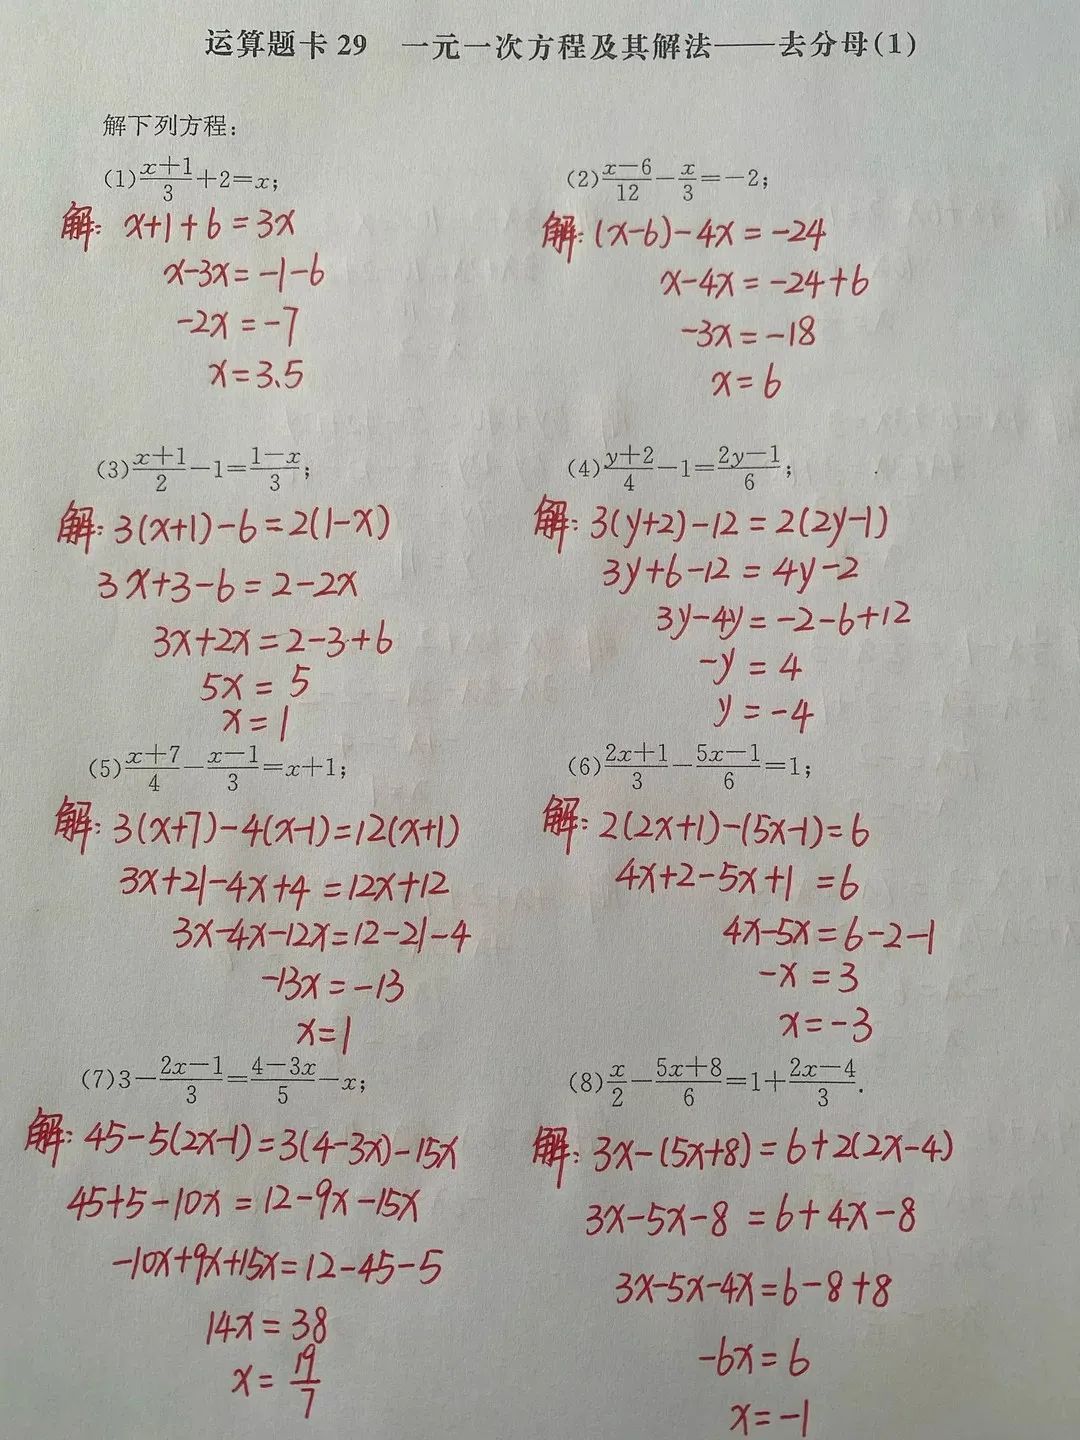 运算题卡 29 一元一次方程及其解法——去分母(1)
解下列方程:
(1) \frac{x+1}{3}+2=x;
解: x+1+6=3x
x-3x=-1-6
-2x=-7
x=3.5
(2) \frac{x-6}{12}-\frac{x}{3}=-2;
解: (x-6)-4x=-24
x-4x=-24+6
-3x=-18
x=6
(3) \frac{x+1}{2}-1=\frac{1-x}{3};
解: 3(x+1)-6=2(1-x)
3x+3-6=2-2x
3x+2x=2-3+6
5x=5
x=1
(4) \frac{y+2}{4}-1=\frac{2y-1}{6};
解: 3(y+2)-12=2(2y-1)
3y+6-12=4y-2
3y-4y=-2-6+12
-y=4
y=-4
(5) \frac{x+7}{4}-\frac{x-1}{3}=x+1;
解: 3(x+7)-4(x-1)=12(x+1)
3x+21-4x+4=12x+12
3x-4x-12x=12-21-4
-13x=-13
x=1
(6) \frac{2x+1}{3}-\frac{5x-1}{6}=1;
解: 2(2x+1)-(5x-1)=6
4x+2-5x+1=6
4x-5x=6-2-1
-x=3
x=-3
(7) 3-\frac{2x-1}{3}=\frac{4-3x}{5}-x;
解: 45-5(2x-1)=3(4-3x)-15x
45+5-10x=12-9x-15x
-10x+9x+15x=12-45-5
14x=38
x=\frac{19}{7}
(8) \frac{x}{2}-\frac{5x+8}{6}=1+\frac{2x-4}{3}.
解: 3x-(5x+8)=6+2(2x-4)
3x-5x-8=6+4x-8
3x-5x-4x=6-8+8
-6x=6
x=-1